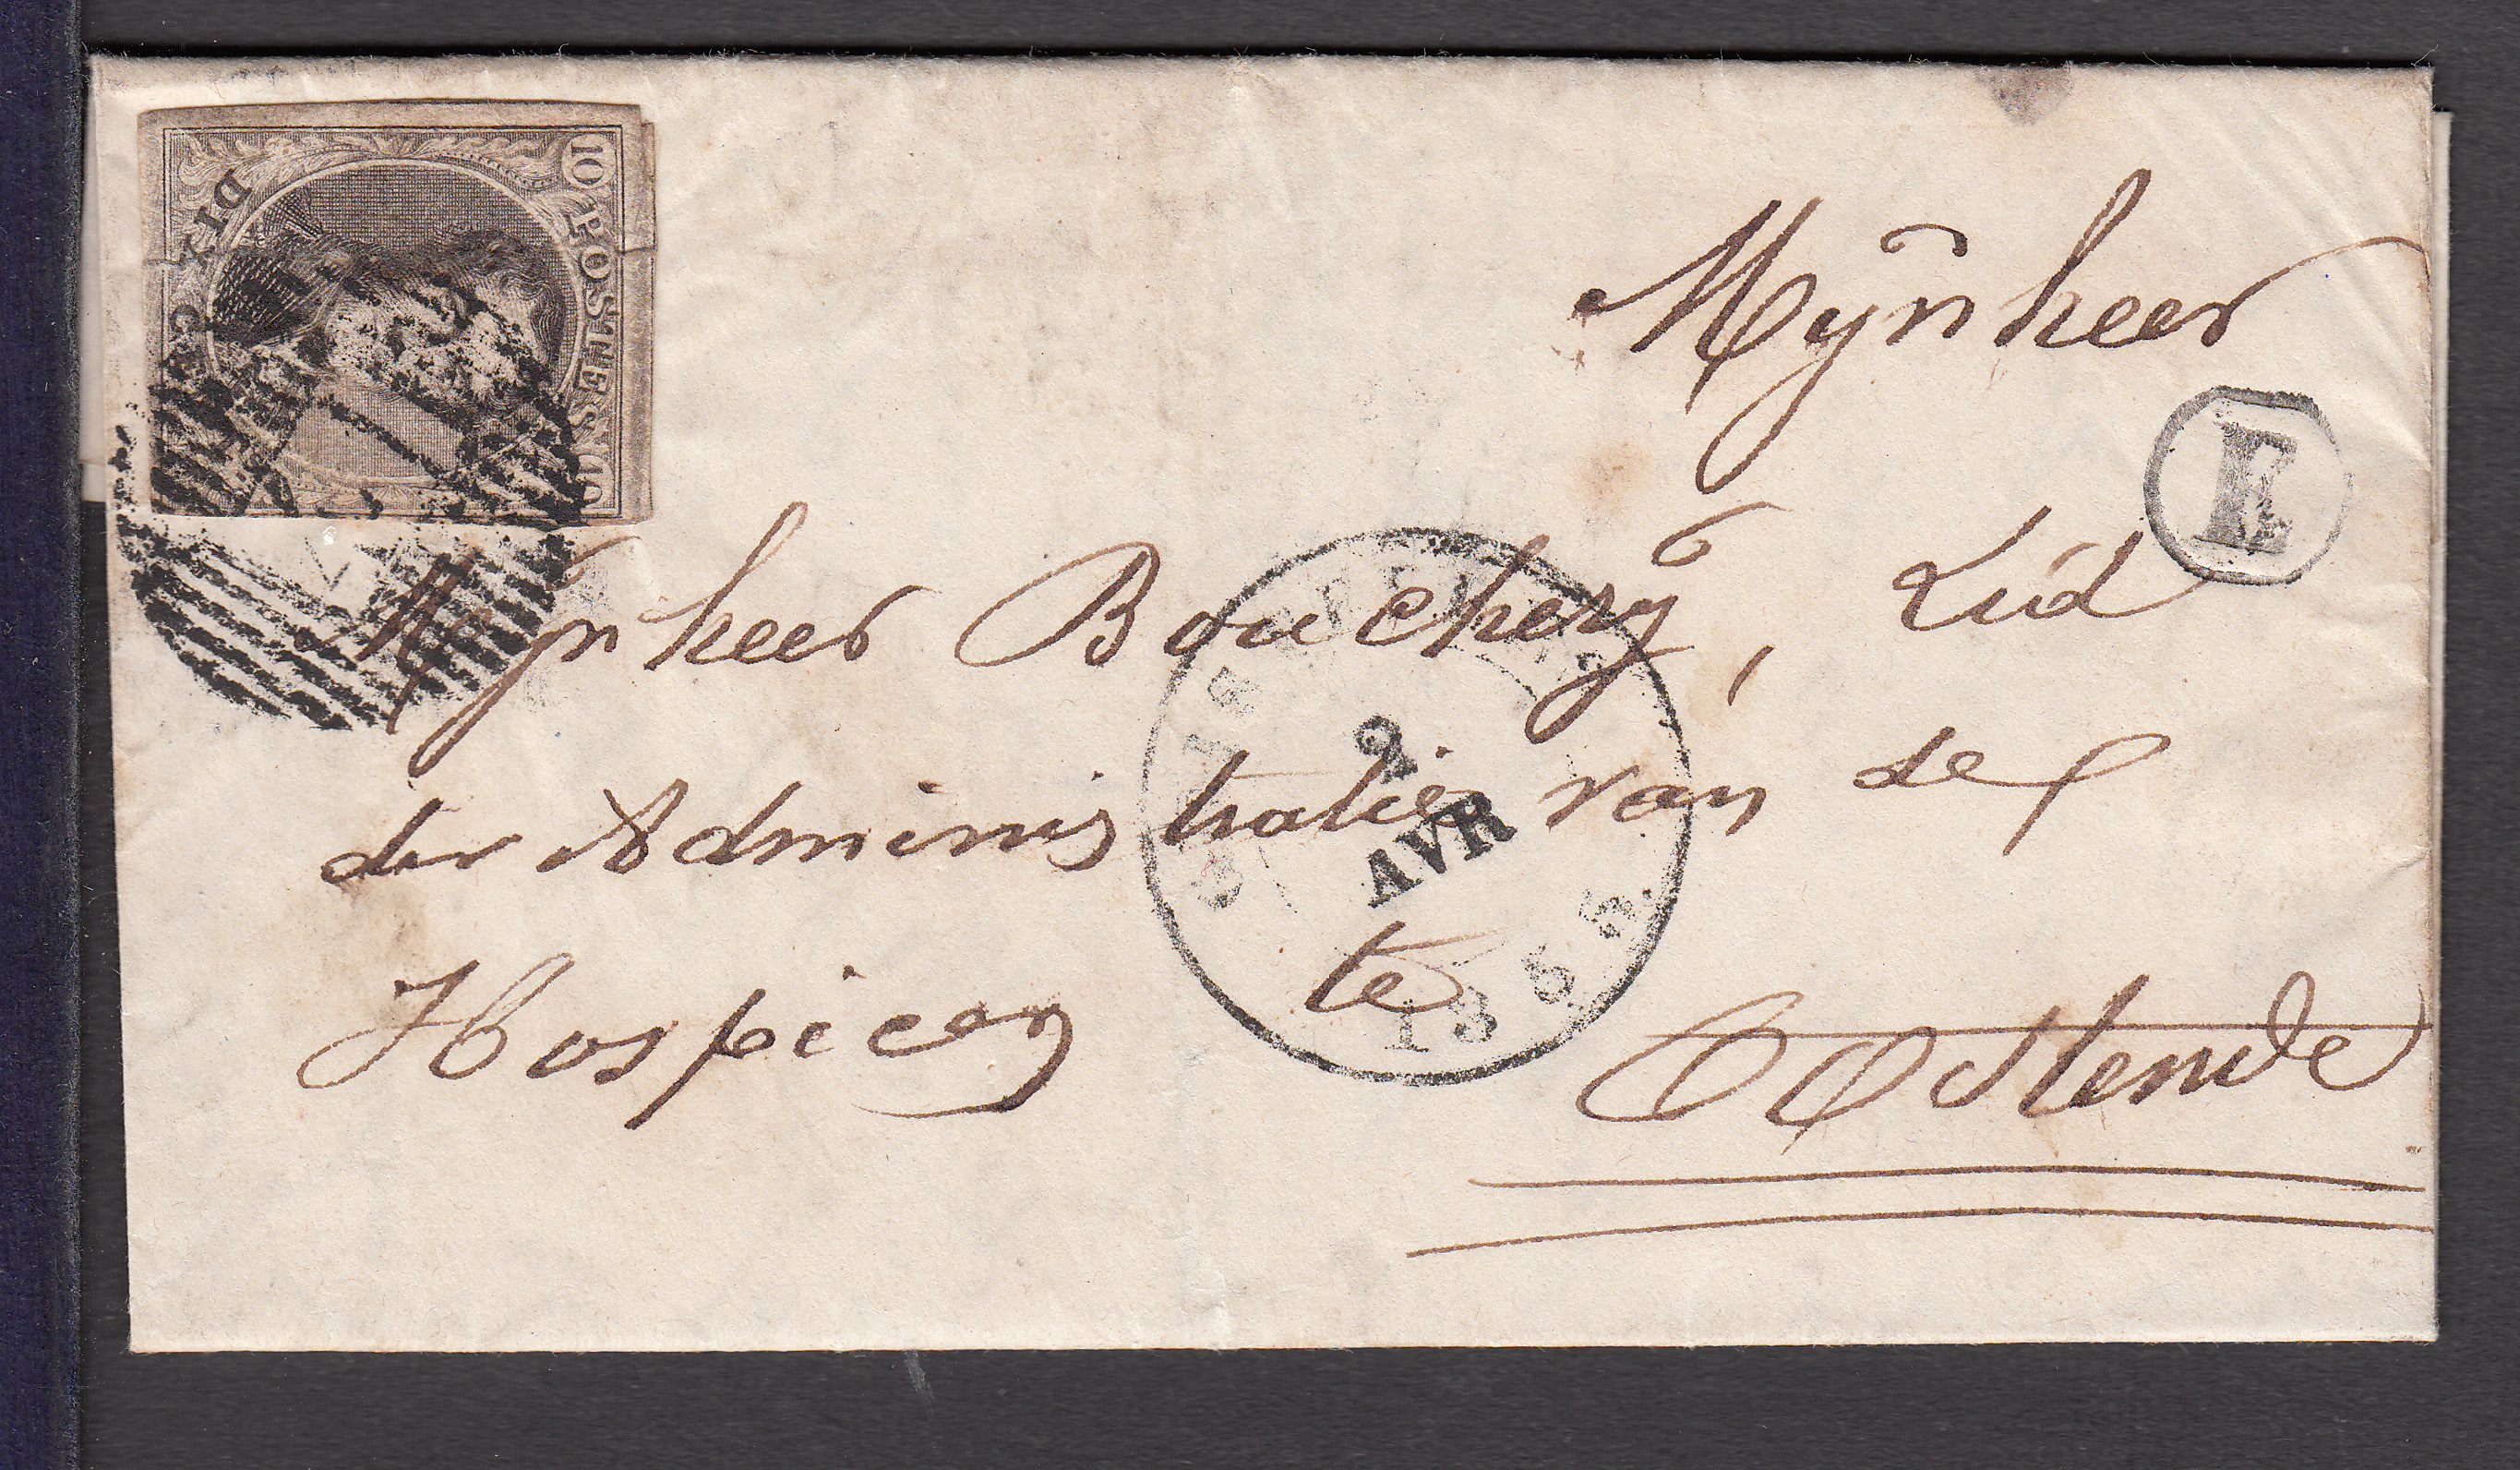 10 POSTES 10
DIX C
Mÿnheer
E
Mÿnheer Boucherÿ, Lid
der Administratie van de
Hospicen te
OOstende
2
AVR
1855.